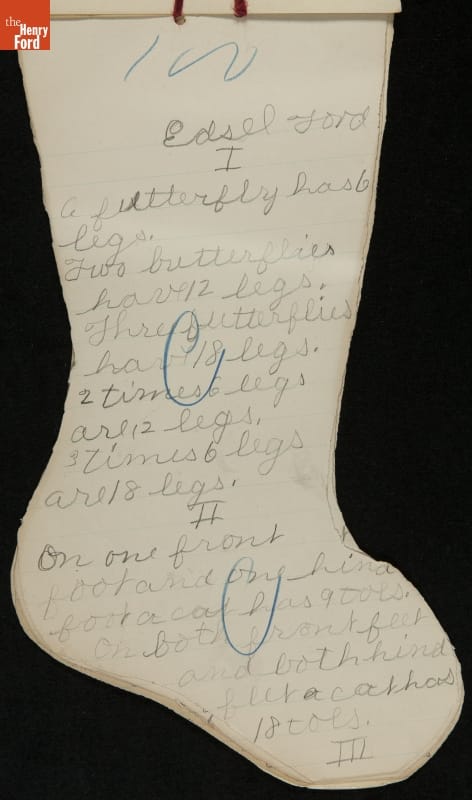 the
Henry
Ford
100
Edsel Ford
I
a futterfly has 6
legs.
Two butterflies
have 12 legs.
Thre butterflies
have 18 legs.
2 times 6 legs
are 12 legs.
3 times 6 legs
are 18 legs.
II
On one front
foot and one hind
foot a cat has 9 toes.
On both front feet
and both hind
feet a cat has
18 toes.
III